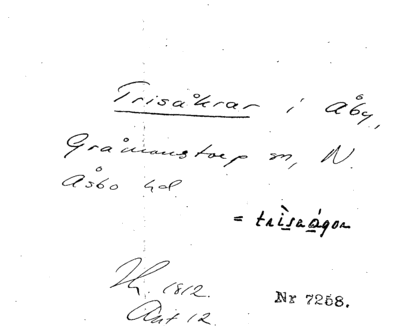 Trisåkrar i Åby,
Gråmanstorp sn, N.
Åsbo hd.
= trìsaágor
1812.
Ant 12.
Nr 7258.